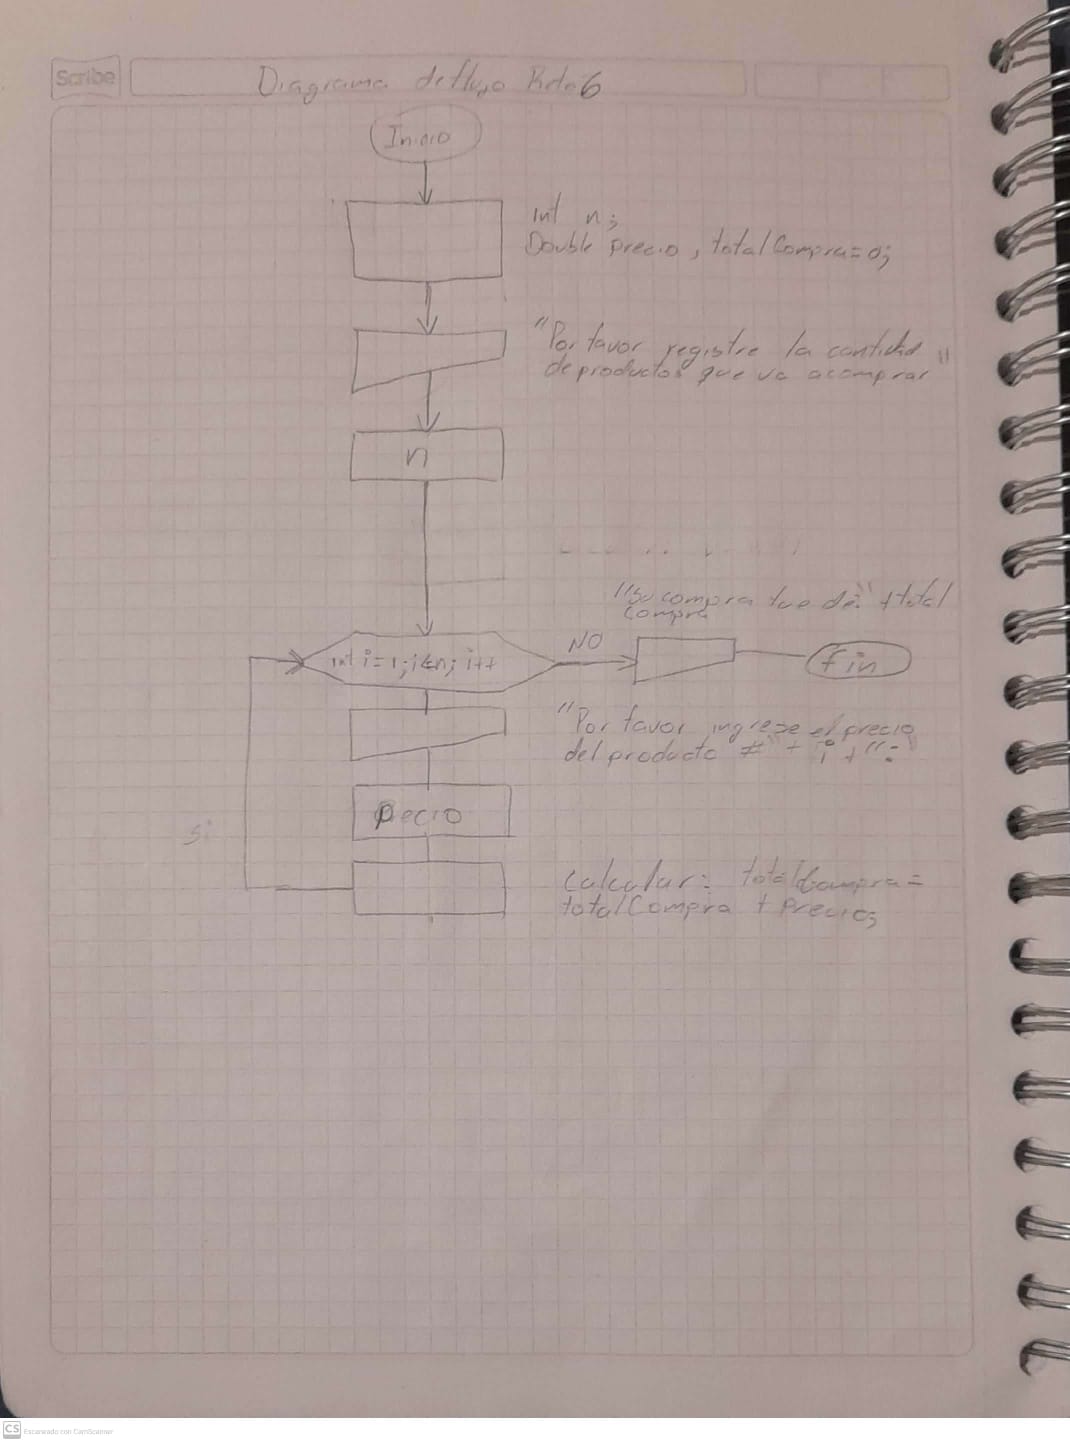 Scribe
Diagrama de flujo Reto 6
Inicio
Int n;
Double precio, totalCompra=0;
"Por favor registre la cantidad
de productos que va a comprar"
n
"Su compra fue de:" + total
Compra
NO
int i=1; i<=n; i++
fin
"Por favor ingrese el precio
del producto #" + i + ":"
Precio
si
Calcular: totalCompra=
totalCompra + Precio;
CS Escaneado con CamScanner